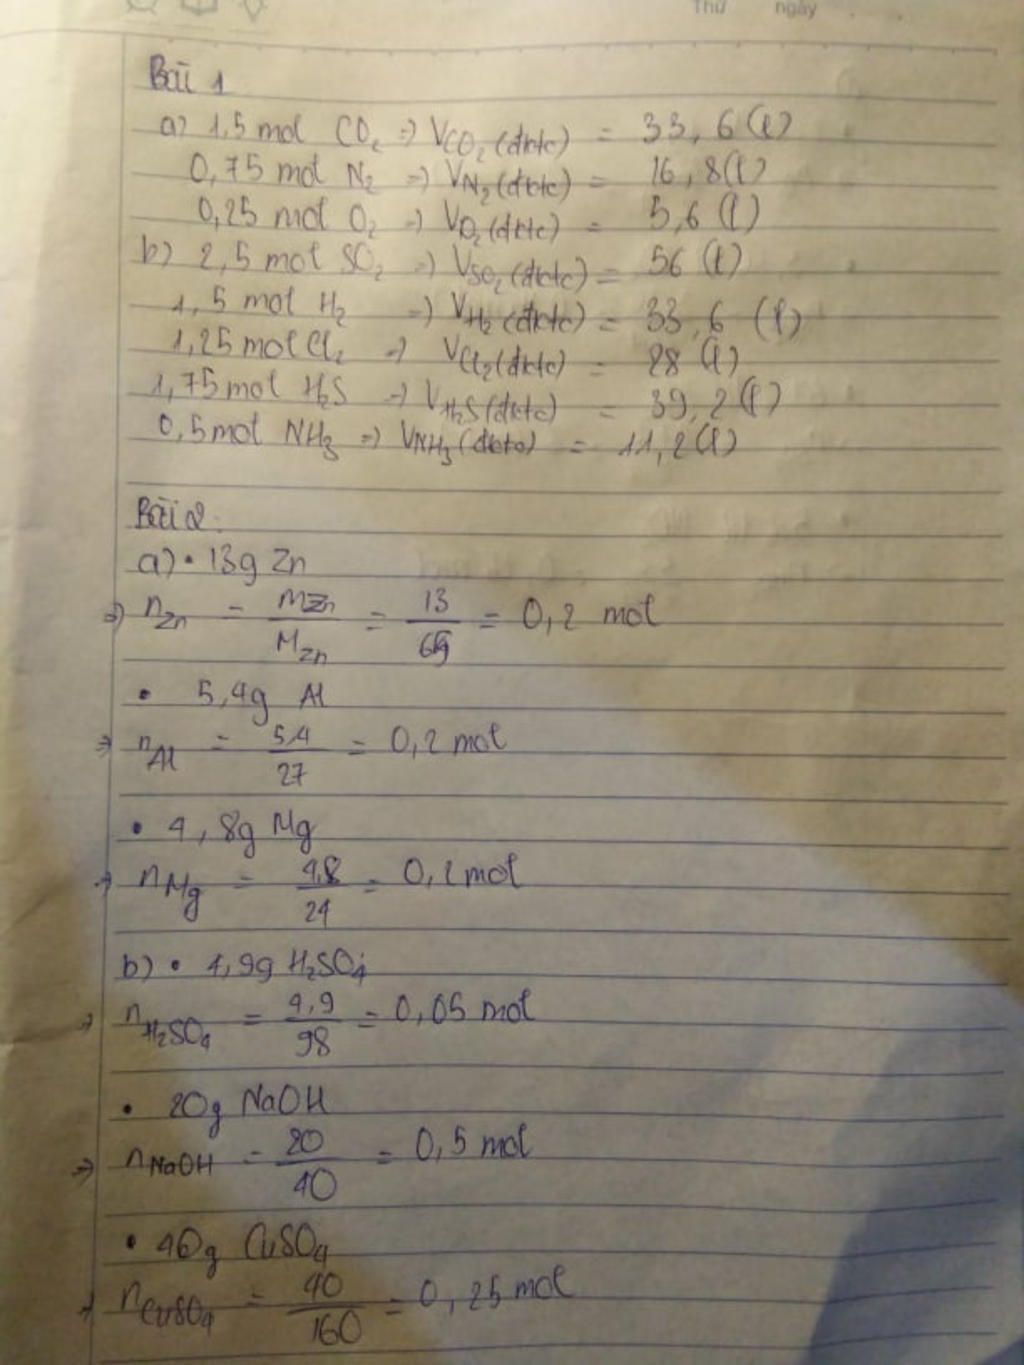 Thứ ngày
Bài 1
a) 1,5 mol CO₂ => V CO₂ (đktc) = 33,6 (l)
0,75 mol N₂ => V N₂ (đktc) = 16,8 (l)
0,25 mol O₂ => V O₂ (đktc) = 5,6 (l)
b) 2,5 mol SO₂ => V SO₂ (đktc) = 56 (l)
1,5 mol H₂ => V H₂ (đktc) = 33,6 (l)
1,25 mol Cl₂ => V Cl₂ (đktc) = 28 (l)
1,75 mol H₂S => V H₂S (đktc) = 39,2 (l)
0,5 mol NH₃ => V NH₃ (đktc) = 11,2 (l)
Bài 2
a) • 13g Zn
=> n Zn = mZn / M Zn = 13 / 65 = 0,2 mol
• 5,4g Al
=> n Al = 5,4 / 27 = 0,2 mol
• 4,8g Mg
=> n Mg = 4,8 / 24 = 0,2 mol
b) • 4,9g H₂SO₄
=> n H₂SO₄ = 4,9 / 98 = 0,05 mol
• 20g NaOH
=> n NaOH = 20 / 40 = 0,5 mol
• 40g CuSO₄
=> n CuSO₄ = 40 / 160 = 0,25 mol